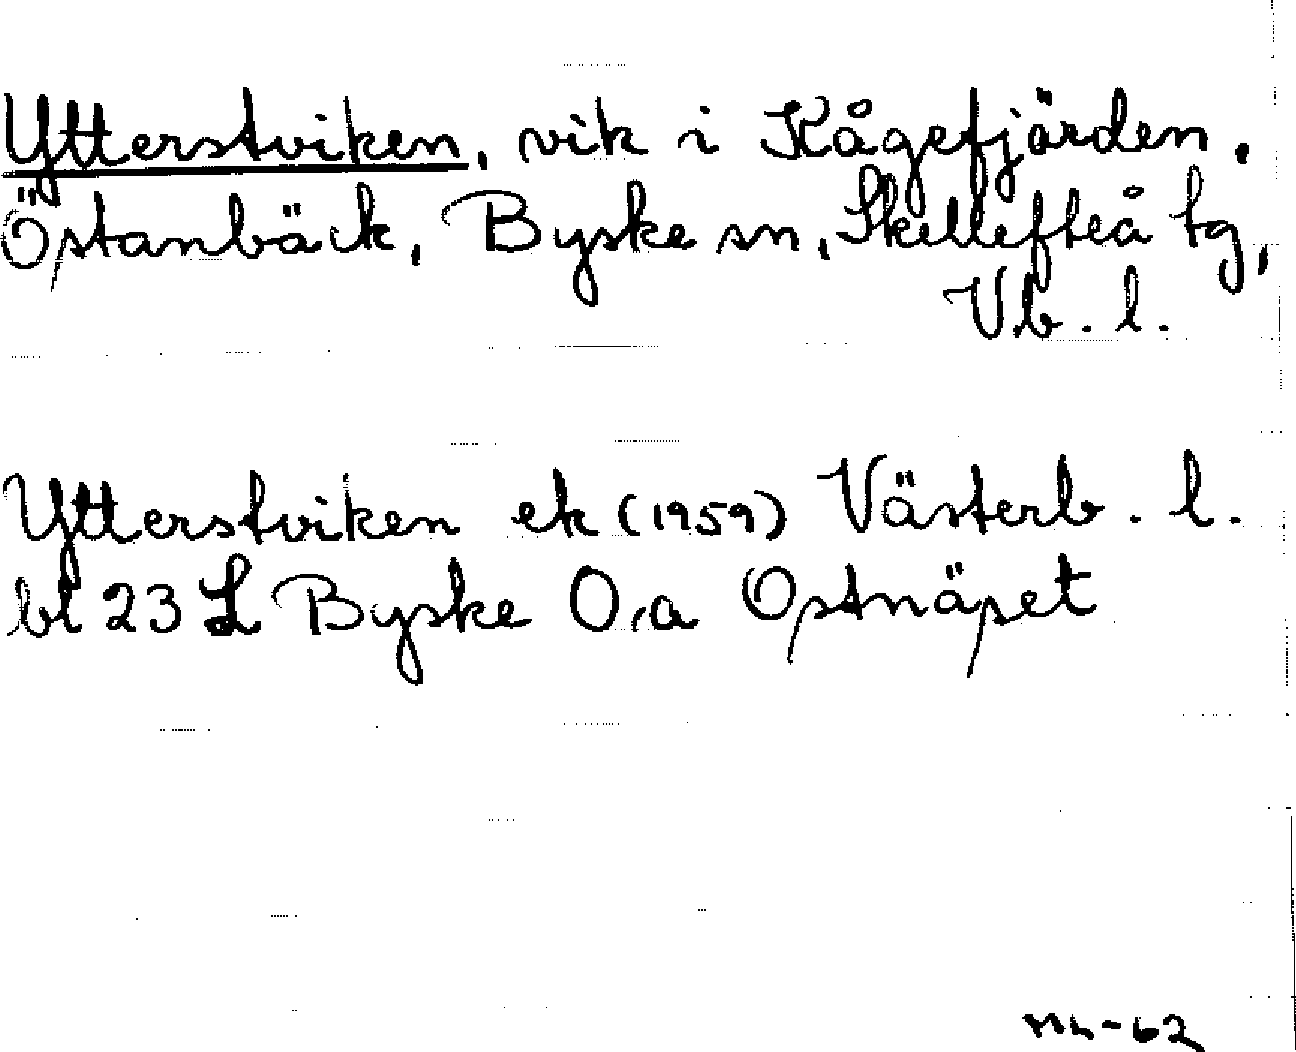 Ytterstviken, vik i Kågefjärden,
Östanbäck, Byske sn, Skellefteå tg,
Vb. l.
Ytterstviken ek (1959) Västerb. l.
bl 23 L Byske O,a Ostnäset